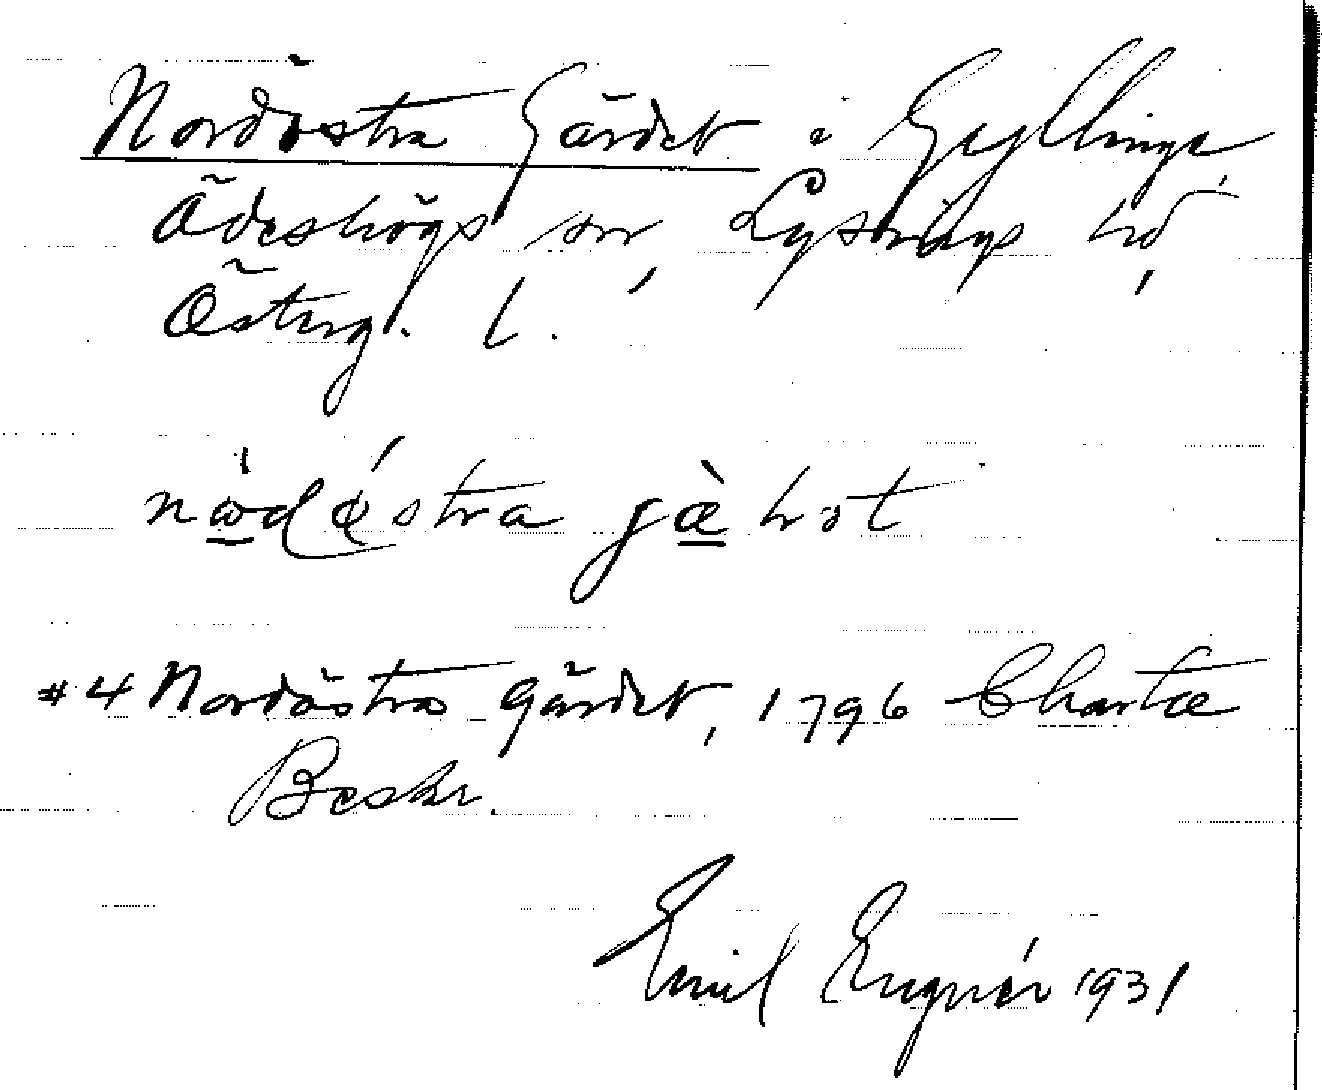 Nordöstra Gärdet i Gyllinge
Ödeshögs sn, Lysings hd,
Österg. l.
nødǿstra gæ̀ ṙət
#4 Nordöstra Gärdet, 1796 Charta
Beskr.
Emil Engnér 1931